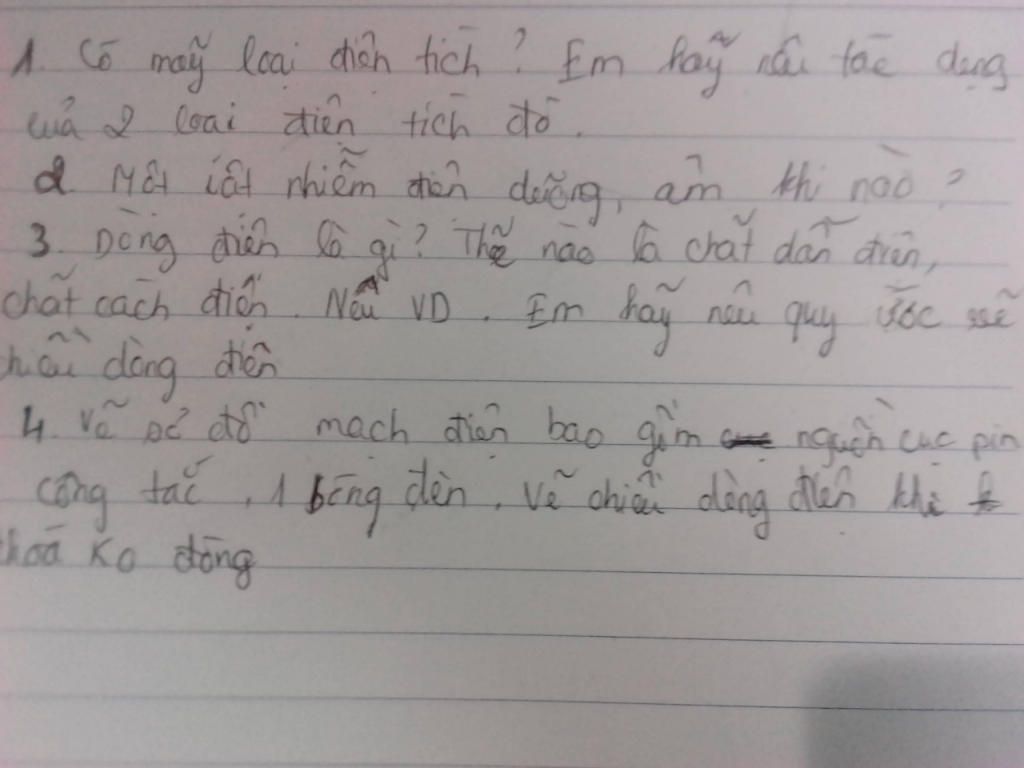 1. Có mấy loại điện tích? Em hãy nêu tác dụng
của 2 loại điện tích đó.
2. Một vật nhiễm điện dương, âm khi nào?
3. Dòng điện là gì? Thế nào là chất dẫn điện,
chất cách điện. Nêu VD. Em hãy nêu quy ước về
chiều dòng điện
4. Vẽ sơ đồ mạch điện bao gồm nguồn cục pin
công tắc, 1 bóng đèn. Vẽ chiều dòng điện khi
khoá Ko đóng